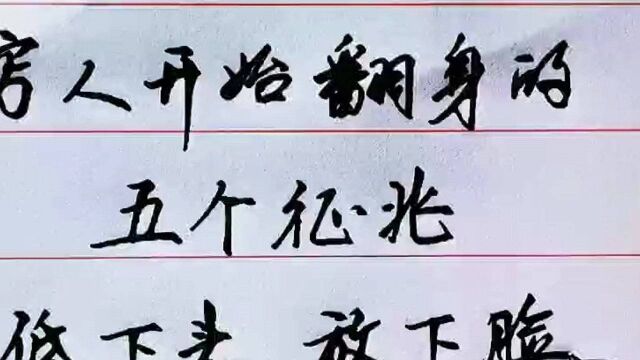 穷人开始翻身的
五个征兆
低下头 放下脸